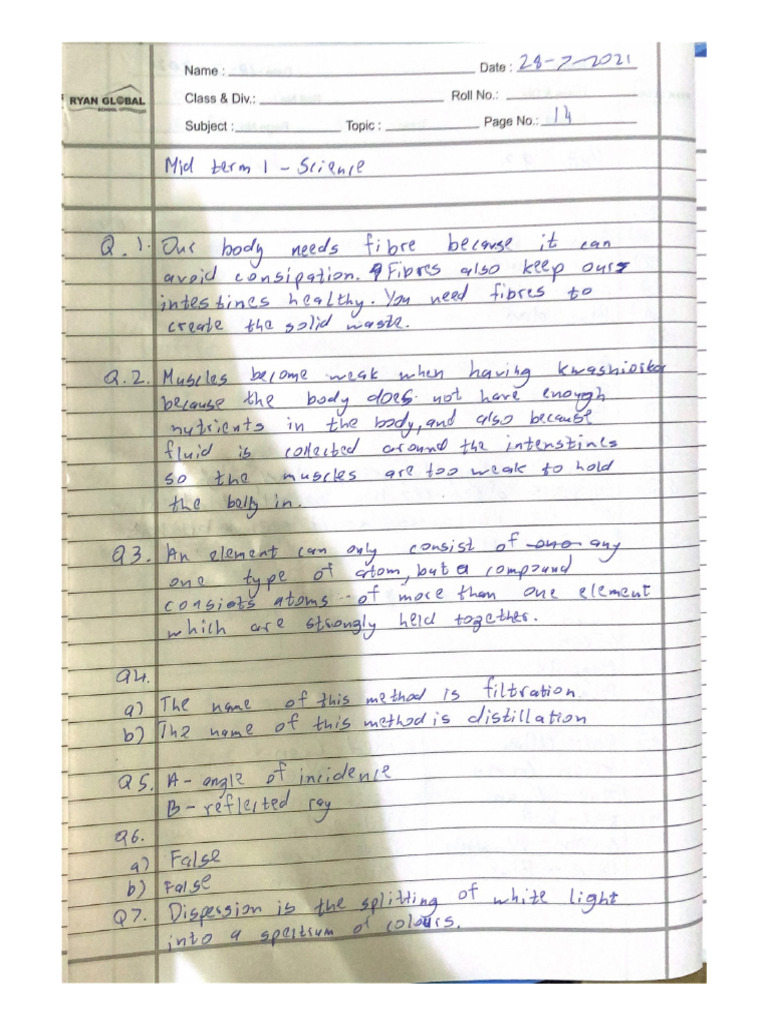 RYAN GLOBAL
SCHOOL
Name :
Date : 28-7-2021
Class & Div.:
Roll No.:
Subject :
Topic :
Page No.: 14
Mid term 1 - Science
Q.1. Our body needs fibre because it can
avoid consipation. Fibres also keep ours
intestines healthy. You need fibres to
create the solid waste.
Q.2. Muscles become weak when having Kwashiokor
because the body does not have enough
nutrients in the body, and also because
fluid is collected around the intenstines
so the muscles are too weak to hold
the belly in.
Q3. An element can only consist of any
one type of atom, but a compound
consists atoms of more than one element
which are strongly held together.
Q4.
a) The name of this method is filtration.
b) The name of this method is distillation
Q5. A - angle of incidence
B - reflected ray
Q6.
a) False
b) False
Q7. Dispession is the splitting of white light
into a spectrum of colours.